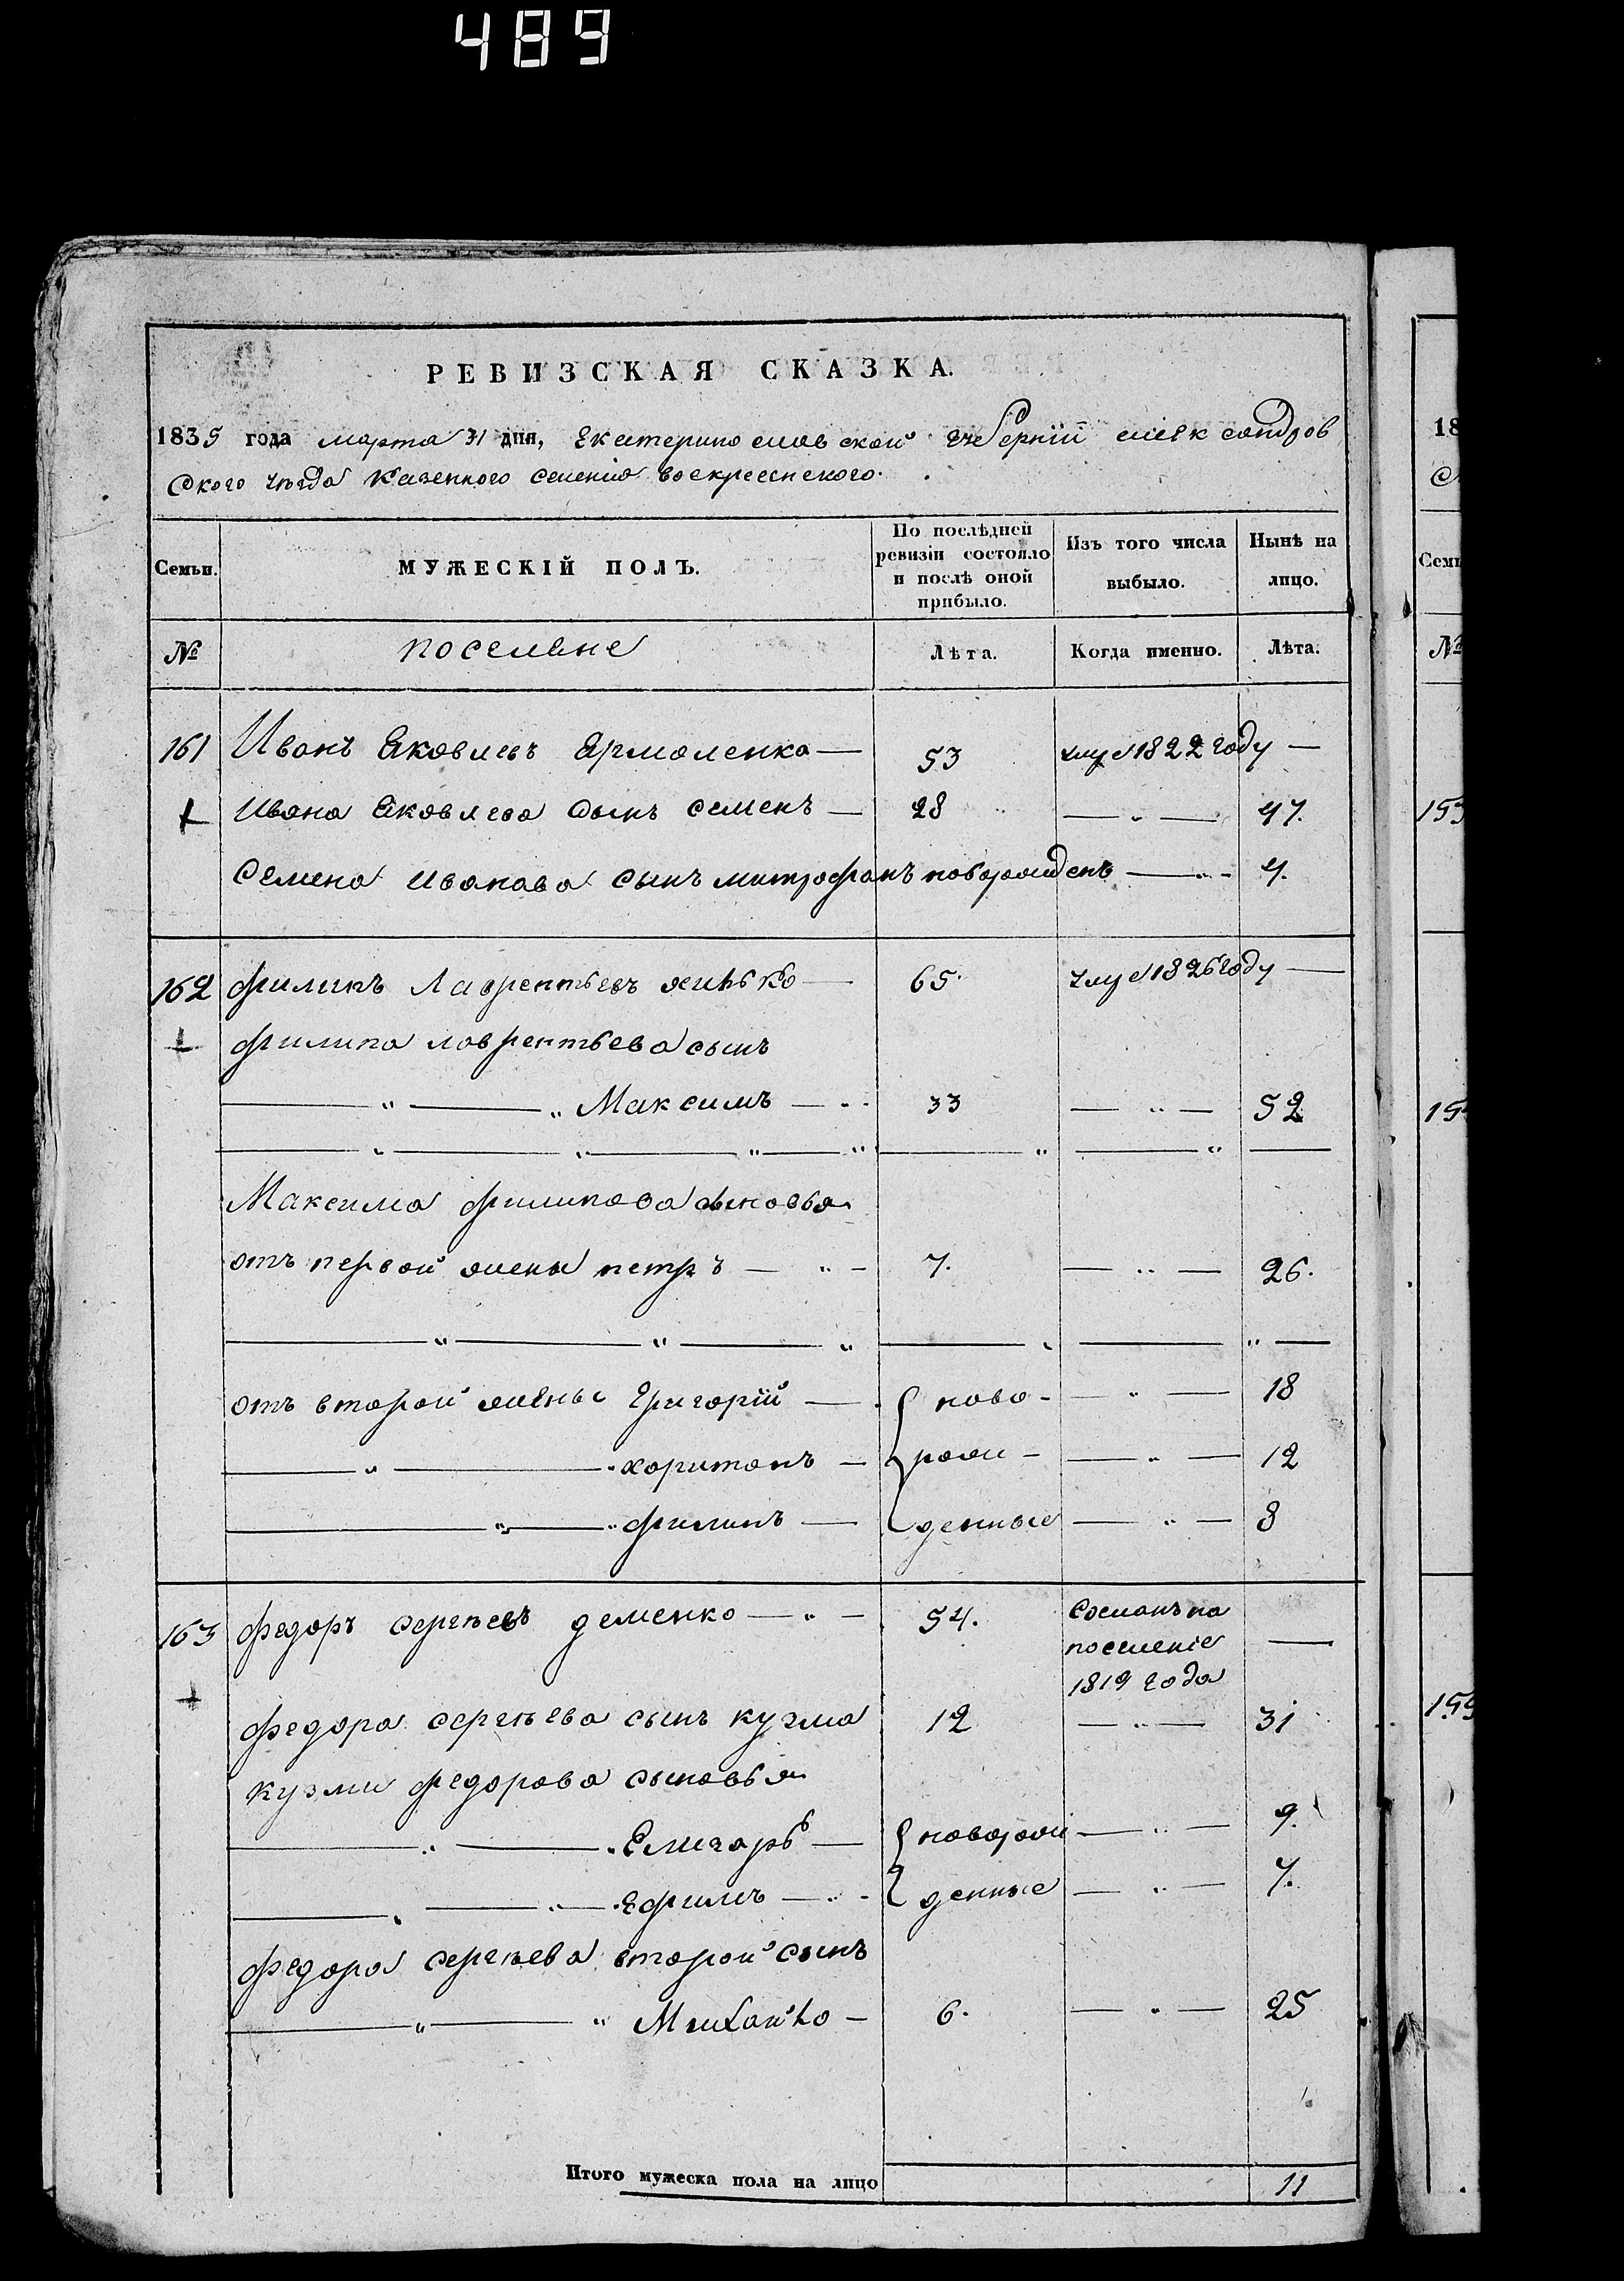 489
РЕВИЗСКАЯ СКАЗКА.
1835 года марта 31 дня, Екатеринославской губернии Александров
ского уезда Казенного селения Воскресенского.
Семьи. МУЖЕСКІЙ ПОЛЪ. По послѣдней ревизіи состояло и послѣ оной прибыло. Изъ того числа выбыло. Нынѣ на лицо.
№ поселяне Лѣта. Когда именно. Лѣта.
161 Иванъ Яковлевъ Ярмоленко — 53 1822 году —
Ивана Яковлева сынъ семенъ — 28 — " — 47.
Семена Иванова сынъ митрофанъ новорожденъ — " — 4.
162 филипъ Лаврентьевъ 65. 1826 году —
филипа лаврентьева сынъ
— " — " Максимъ — 33 — " — 52
Максима филипова сыновья
отъ первой жены петръ — " — 7. — " — 26.
отъ второй жены Григорій — ново- — " — 18
— " — харитонъ — рож- — " — 12
— " — " филипъ — денные — " — 8
163 федоръ сергѣевъ деменко — " — 54. Сосланъ на
поселеніе —
1819 года
федора сергѣева сынъ кузма 12 — " — 31
кузми федорова сыновья
— " — Елизаръ — новорож — " — 9.
— " — Ефимъ — " — денные — " — 7.
федора сергѣева второй сынъ
— " — " Михайло — 6. — " — 25
Итого мужеска пола на лицо 11
18
Семь
№
153